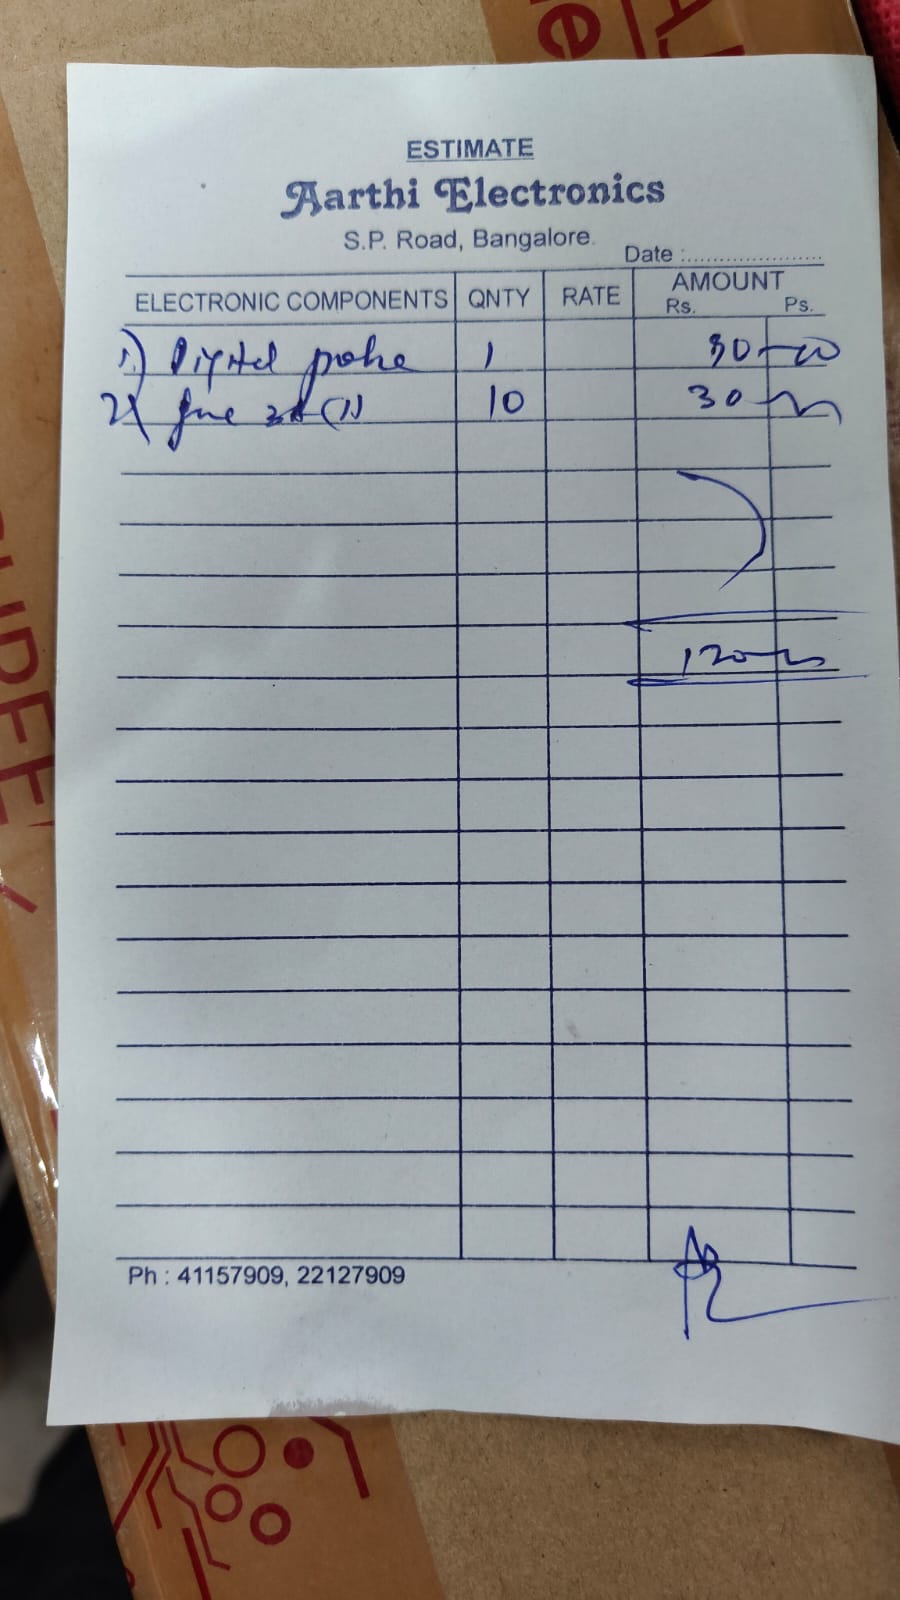 ESTIMATE
Aarthi Electronics
S.P. Road, Bangalore.
Date :
ELECTRONIC COMPONENTS QNTY RATE AMOUNT
Rs. Ps.
1) Digital probe 1 90-00
2) fuse 10 30
120
Ph : 41157909, 22127909